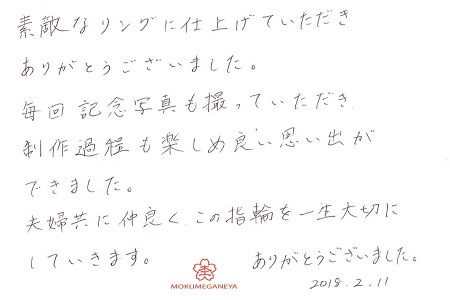 素敵なリングに仕上げていただき
ありがとうございました。
毎回記念写真も撮っていただき、
制作過程も楽しめ良い思い出が
できました。
夫婦共に仲良く、この指輪を一生大切に
していきます。
ありがとうございました。
MOKUMEGANEYA
2018.2.11